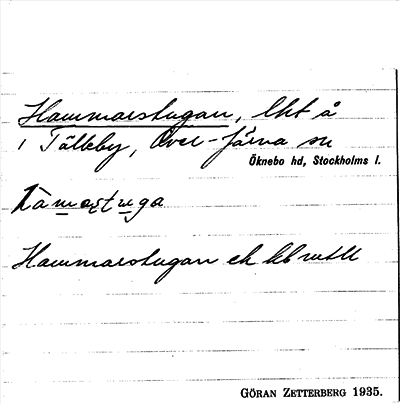 Hammarstugan, lht å
i Tälleby, Över-Järna sn
Öknebo hd, Stockholms l.
hàmarstuga
Hammarstugan ek kb
GÖRAN ZETTERBERG 1935.